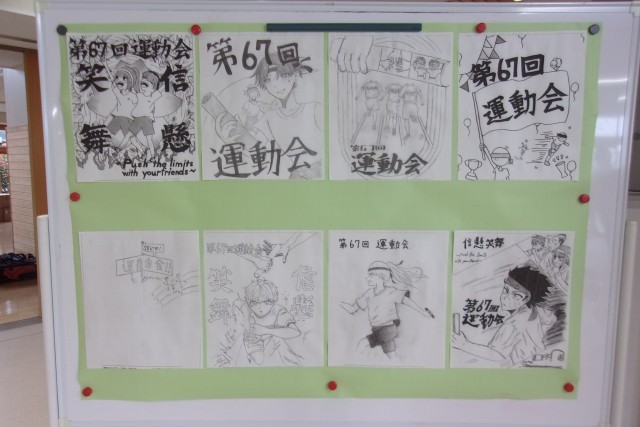 第67回運動会
笑 信
舞 懸
~Push the limits
with your friends~
第67回
運動会
第67回
運動会
第67回
運動会
第67回運動会
笑 信
舞 懸
第67回 運動会
信懸笑舞
第67回
運動会